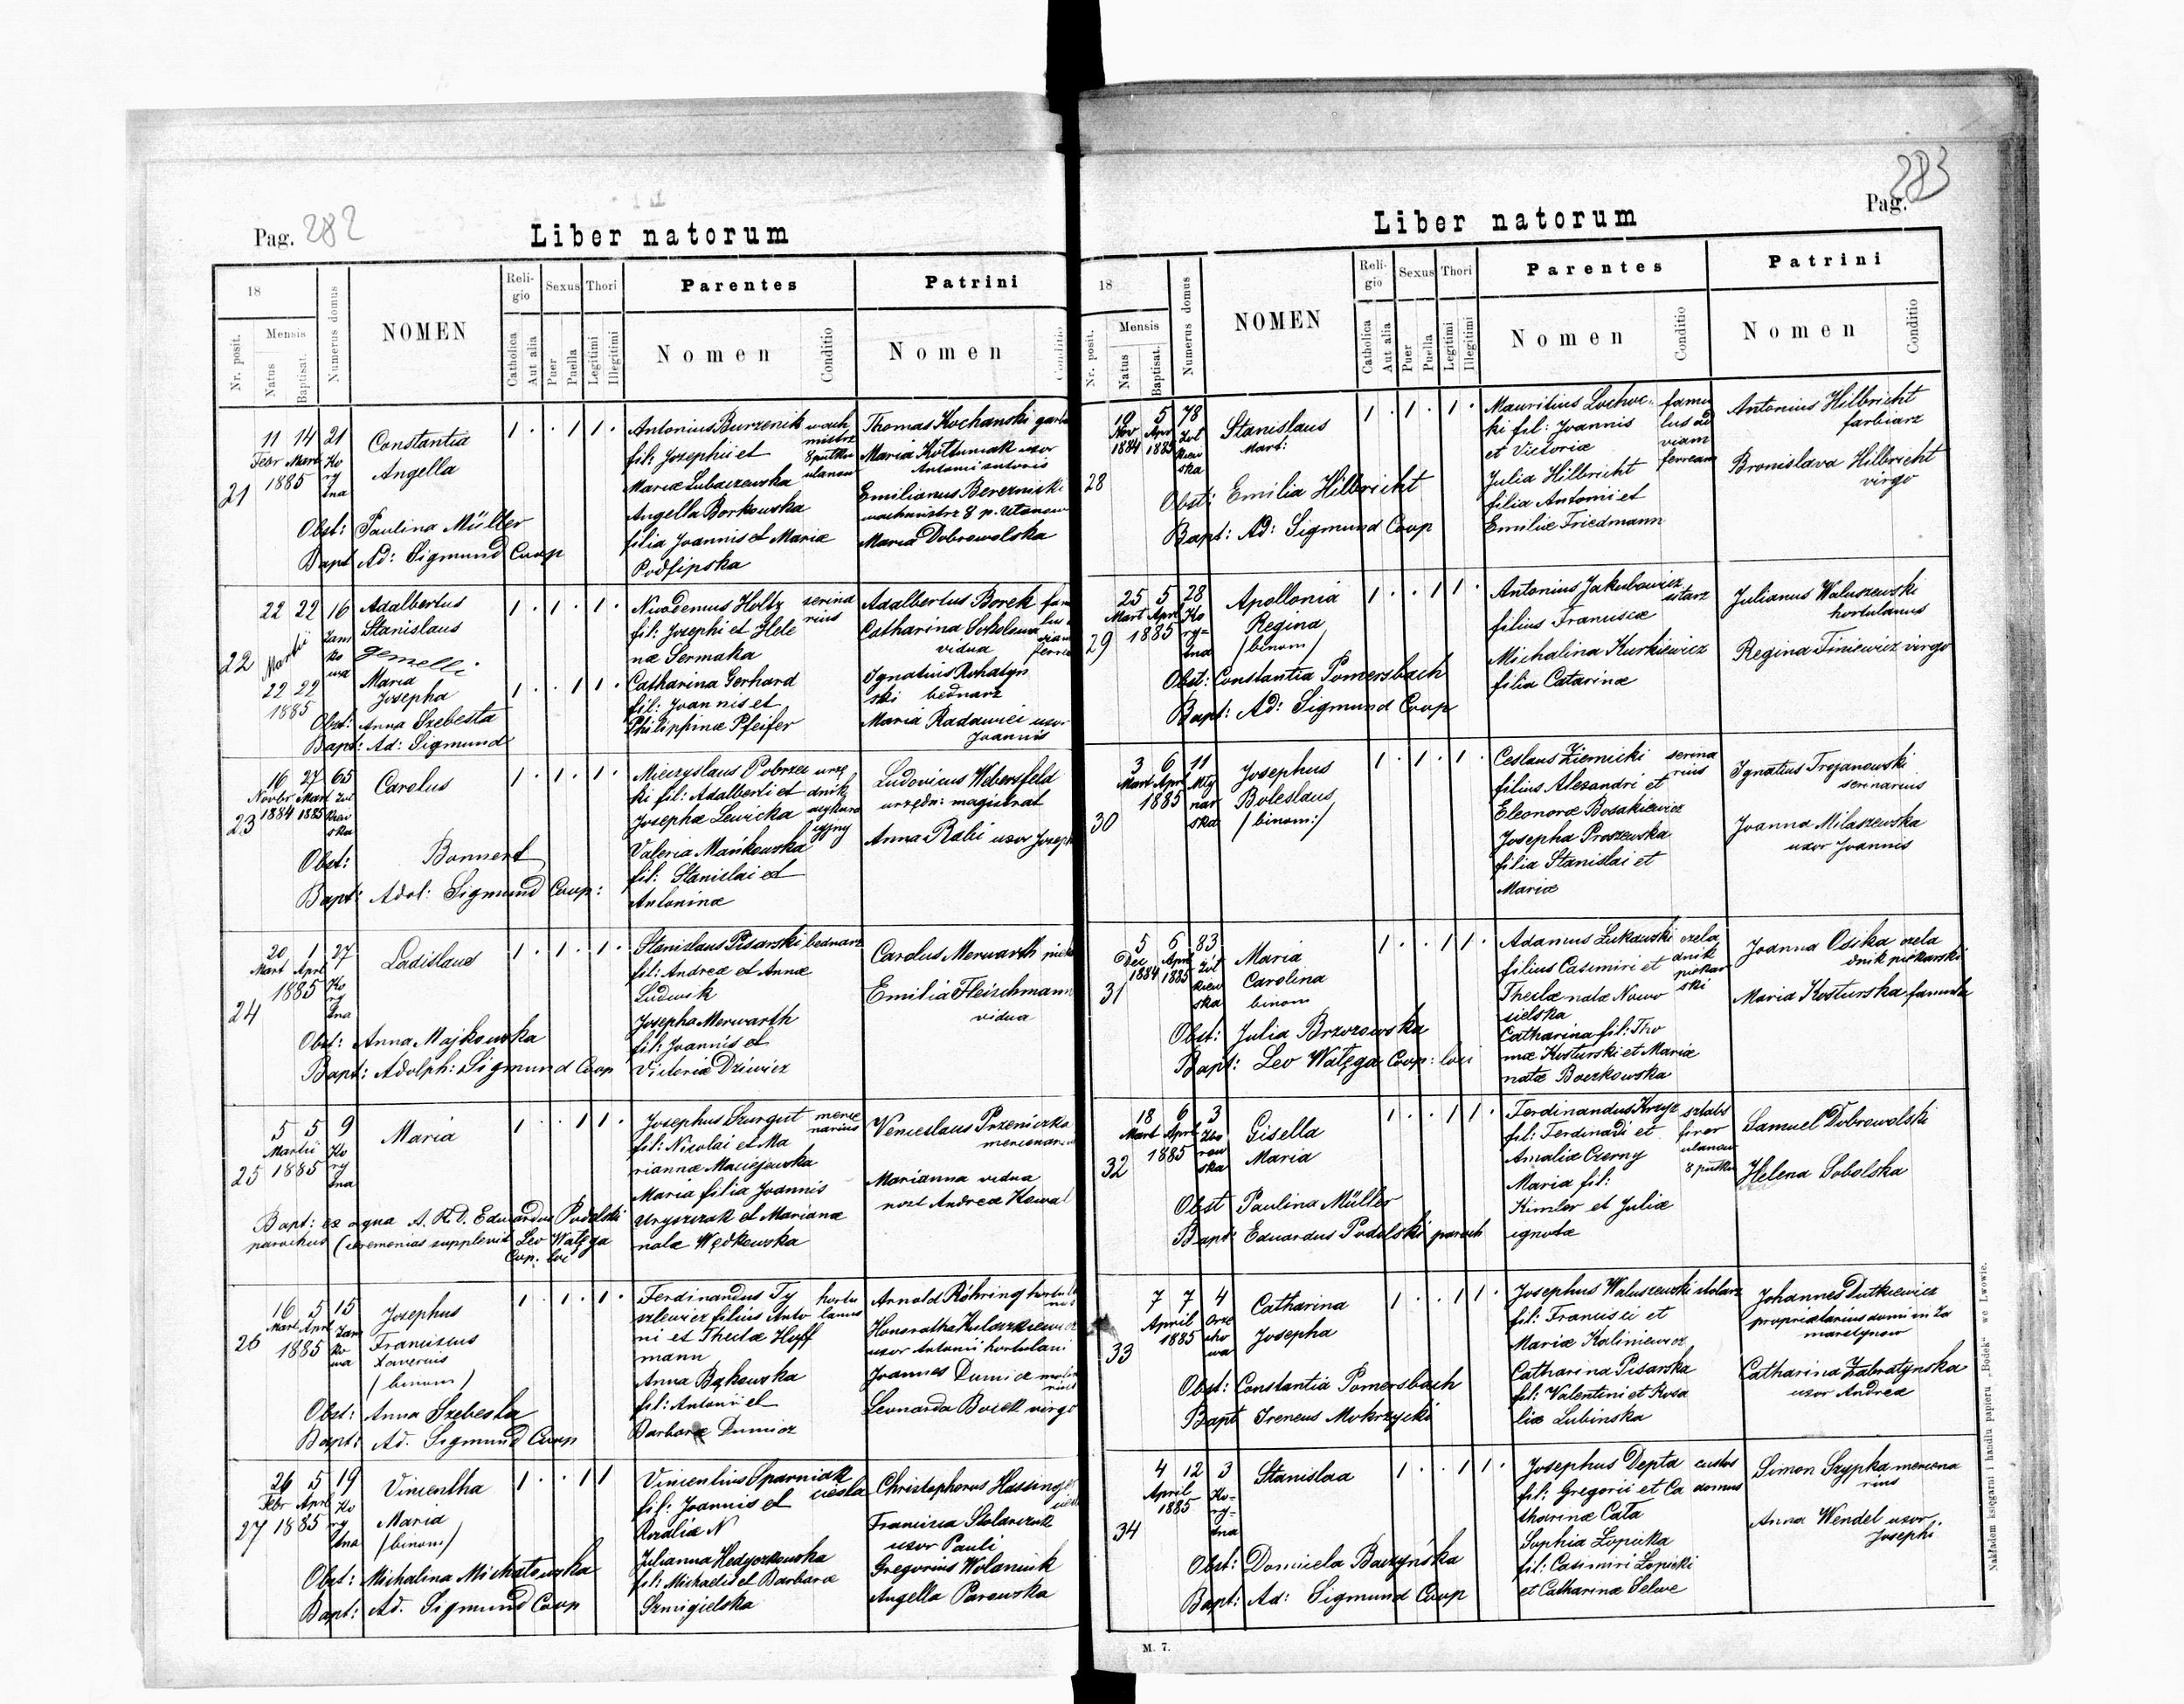 Pag. 282
Liber natorum
18
Nr. posit.
Mensis
Natus
Baptisat.
Numerus domus
NOMEN
Religio
Catholica
Aut alia
Sexus
Puer
Puella
Thori
Legitimi
Illegitimi
Parentes
Nomen
Conditio
Patrini
Nomen
Conditio
21
11 14 21
Febr Mart
1885
Ko
ry
tna
Constantia
Angella
Obst: Paulina Müller
Bapt Ad: Sigmund Coop
1 . . 1 1 .
Antonius Burzenik
fil: Josephi et
Mariæ Lubaczewska
Angella Borkowska
filia Joannis et Mariæ
Podfipska
wach
mistrz
8 pułku
ulanów
Thomas Kochanski
Maria Kottuniak uxor
Antoni sutoris
Emilianus Berezniski
wachmistrz 8 p. Ulanow
Maria Dobrowolska
22
22 22 16
Martii
22 22
1885
Zam
ko
wa
Adalbertus
Stanislaus
gemelli
Maria
Josepha
Obst: Anna Szebesta
Bapt: Ad: Sigmund
1 . 1 . 1 .
1 . . 1 1 .
Nicodemus Holtz
fil: Josephi et Hele
næ Sermaka
Catharina Gerhard
fil: Joannis et
Philippinæ Pfeifer
serina
rius
Adalbertus Borek
Catharina Sokolowa
vidua
Ignatius Rohatyn
ski bednarz
Maria Radawiei uxor
Joannis
23
16 27 65
Novbr Mart
1884 1885
Żół
kiew
ska
Carolus
Obst: Bonnert
Bapt: Adol: Sigmund Coop:
1 . 1 . 1 .
Mieczyslaus Pobrzec
ki fil: Adalberti et
Josephæ Lewicka
Valeria Mańkowska
fil: Stanislai et
Antoninæ
urzę
dnik
Ludovicus Webersfeld
urzędn: magistrat
Anna Rabi uxor Joseph
24
20 1 27
Mart Aprl
1885
Ko
ry
tna
Ladislaus
Obst: Anna Majkowska
Bapt: Adolph: Sigmund Coop
1 . 1 . 1 .
Stanislaus Pisarski bednarz
fil: Andreæ et Annæ
Ludwik
Josepha Merwarth
fil: Joannis et
Victoriæ Dziwicz
Carolus Merwarth
Emilia Fleischmann
vidua
25
5 5 9
Martii
1885
Ko
ry
tna
Maria
Bapt: ex aqua A. R. D. Eduardus Podolski
parochus (ceremonias supplevit Leo Wałęga
Coop. loci
1 . . 1 1 .
Josephus Szurgut
fil: Nicolai et Ma
riannæ Maciejewska
Maria filia Joannis
Uryszczak et Marianæ
natæ Wędkowska
merce
narius
Venceslaus Przeniczka
Marianna vidua
post Andrea Kowal
26
16 5 15
Mart Aprl
1885
Zam
ko
wa
Josephus
Franciscus
Xaverius
(binom)
Obst: Anna Szebesta
Bapt: Ad. Sigmund Coop
1 . 1 . 1 .
Ferdinandus Ty
szlewicz filius Anto
ni et Theclæ Hoff
mann
Anna Bąkowska
fil: Antonii et
Barbaræ Dumicz
hortu
lanus
Arnold Röhring
uxor Antonii hortulani
Joannes Dumicz
Leonarda Borek virgo
27
26 5 19
Febr Aprl
1885
Ko
ry
tna
Vincentha
Maria
(binom)
Obst: Michalina Michałowska
Bapt: Ad. Sigmund Coop
1 . . 1 1
Vincentius Sparniak
fil: Joannis et
Rosaliæ N
Julianna Hedgorkowska
fil: Michaelis et Barbaræ
Szmigielska
ciesla
Christophorus Hassinger
Francisca Stolarczuk
uxor Pauli
Gregorius Wolaniuk
Angella Parowska
Pag. 283
Liber natorum
18
Nr. posit.
Mensis
Natus
Baptisat.
Numerus domus
NOMEN
Religio
Catholica
Aut alia
Sexus
Puer
Puella
Thori
Legitimi
Illegitimi
Parentes
Nomen
Conditio
Patrini
Nomen
Conditio
28
10 5 78
Nov Aprl
1884 1885
Żoł
kiew
ska
Stanislaus
Mart:
Obst: Emilia Hilbricht
Bapt: Ad: Sigmund Coop
1 . 1 . 1 .
Mauritius Lochoc
ki fil: Joannis
et Victoriæ
Julia Hilbricht
filia Antonii et
Emiliæ Friedmann
famu
lus ad
viam
ferream
Antonius Hilbricht
farbiarz
Bronislava Hilbricht
virgo
29
25 5 28
Mart Aprl
1885
Ko
ry=
tna
Apollonia
Regina
(binom)
Obst: Constantia Pomersbach
Bapt: Ad: Sigmund Coop
1 . . 1 1 .
Antonius Jakubowicz
sitarz
filius Franciscæ
Michalina Kurkiewicz
filia Catarinæ
Julianus Waluszewski
hortulanus
Regina Finiewicz virgo
30
3 6 11
Mart Aprl
1885
Mły
nar
ska
Josephus
Boleslaus
(binom:)
1 . 1 . 1 .
Ceslaus Ziernicki
filius Alexandri et
Eleonoræ Bosakiewicz
Josepha Proszewska
filia Stanislai et
Mariæ
serina
rius
Ignatius Trojanowski
serinarius
Joanna Milaszewska
uxor Joannis
31
5 6 83
Dec Aprl
1884 1885
Żół
kiew
ska
Maria
Carolina
binom
Obst: Julia Brzozowska
Bapt: Leo Wałęga Coop: loci
1 . . 1 1 .
Adamus Lukawski
filius Casimiri et
Theclæ natæ Nowo
sielska
Catharina fil: Tho
mæ Kosturski et Mariæ
natæ Boczkowska
czela
dnik
piekar
ski
Joanna Osika czela
dnik piekarski
Maria Kosturska famula
32
18 6 3
Mart Aprl
1885
Zbo
row
ska
Gisella
Maria
Obst Paulina Müller
Bapt Eduardus Podolski paroch
1 . . 1 1 .
Ferdinandus Krzyz
fil: Ferdinadi et
Amaliæ Czerny
Maria fil:
Kimler et Juliæ
ignotæ
sztabs
firer
ulanow
8 pułku
Samuel Dobrowolski
Helena Sobolska
33
7 7 4
April
1885
Orze
cho
wa
Catharina
Josepha
Obst: Constantia Pomersbach
Bapt Ireneus Mokrzycki
1 . . 1 1 .
Josephus Waluszewski stolarz
fil: Francisci et
Mariæ Kaliniewicz
Catharina Pisarska
fil: Valentini et Rosa
liæ Lubinska
Johannes Dutkiewicz
proprietarius domi in Za
marstynow
Catharina Zabratynska
uxor Andreæ
34
4 12 3
April
1885
Ko-
ry-
tna
Stanislaa
Obst: Domicela Baczyńska
Bapt: Ad: Sigmund Coop
1 . . 1 1 .
Josephus Depta
fil: Gregorii et Ca
tharinæ Cata
Sophia Lopicka
fil: Casimiri Lopicki
et Catharinæ Selwe
custos
domus
Simon Szypka mercena
rius
Anna Wendel uxor
Josephi
M. 7.
Nakładem księgarni i handlu papieru „Bodek“ we Lwowie.